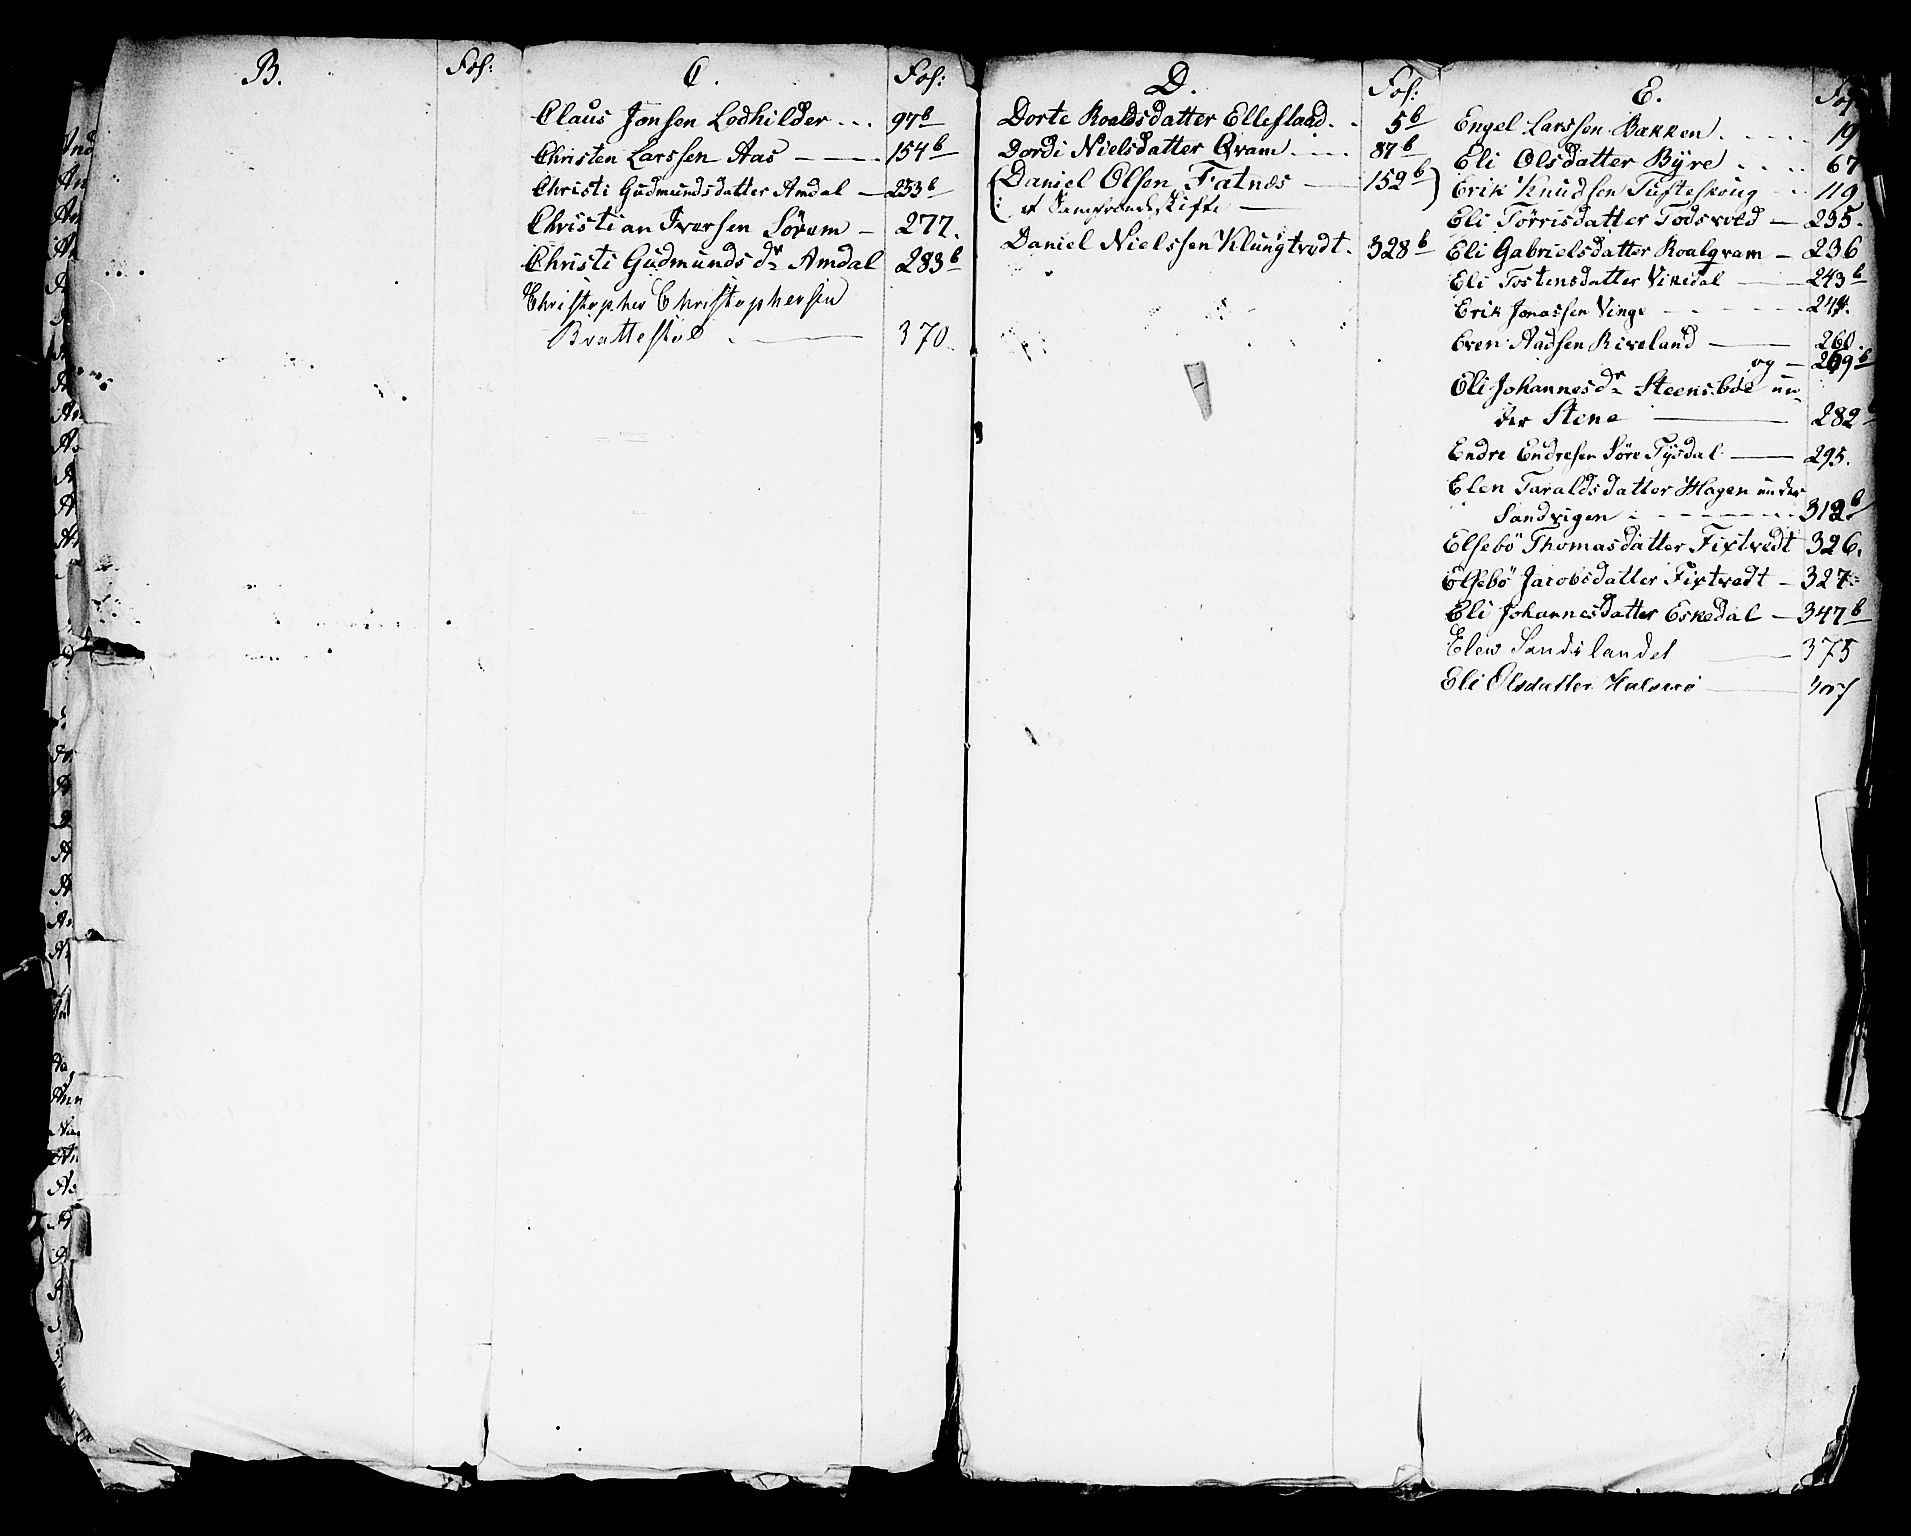 B. Fol:
C. Fol:
Claus Jonsen Lodhilder . . . 97b
Christen Larssen Aas — 154b
Christi Gudmundsdatter Amdal — 253b
Christian Iversen Sörem — 277.
Christi Gudmundsdr Amdal 283b
Christopher Christophersen
Brattestöe — 370
D. Fol:
Dorte Roaldsdatter Ellefland . . 5b
Dordi Nielsdatter Qvam . . . . 87b
(Daniel Olsen Fatnæs — 152b)
Daniel Nielssen Klungtvedt . 328b
E. Fol
Engel Larssen Bakken . . . . 19
Eli Olsdatter Byre . . . . 67
Erik Knudsen Tufteskoug . . 119
Eli Törrisdatter Todsvold — 235.
Eli Gabrielsdatter Roalqvam — 236
Eli Tostensdatter Vikedal — 243b
Erik Jonassen Vinge - - - - 244.
Even Aadsen Kiveland — 260.
og — 269b
Eli Johannesdr Steensböe un-
der Stene — 282
Endre Endresen Söre Tysdal — 295.
Elen Taraldsdatter Hagen under
Sandvigen - - - - 312b
Elsebö Thomasdatter Fixtvedt 326.
Elsebö Jacobsdatter Fixtvedt — 327
Eli Johannesdatter Eskedal — 347b
Elew Sandslandet — 375
Eli Olsdatter — 407